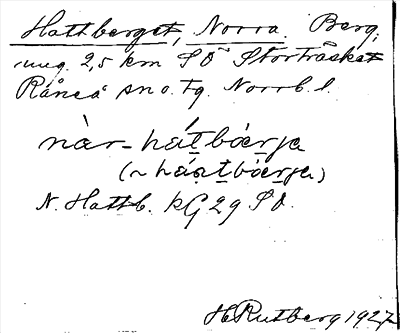 Hattberget, Norra. Berg,
ung. 2,5 km SO Storträsket
Råneå sn o. tg. Norrb. l.
nàr-hát̲bóærja
(~ háṣt̲bóærja)
N. Hattb. kG 29 SO.
H Rutberg 1927